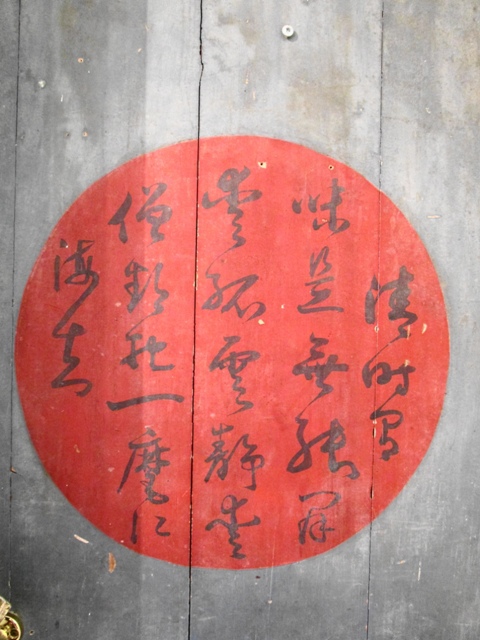 清時有
味是無能閒
愛孤雲靜愛
僧欲把一麾江
海去